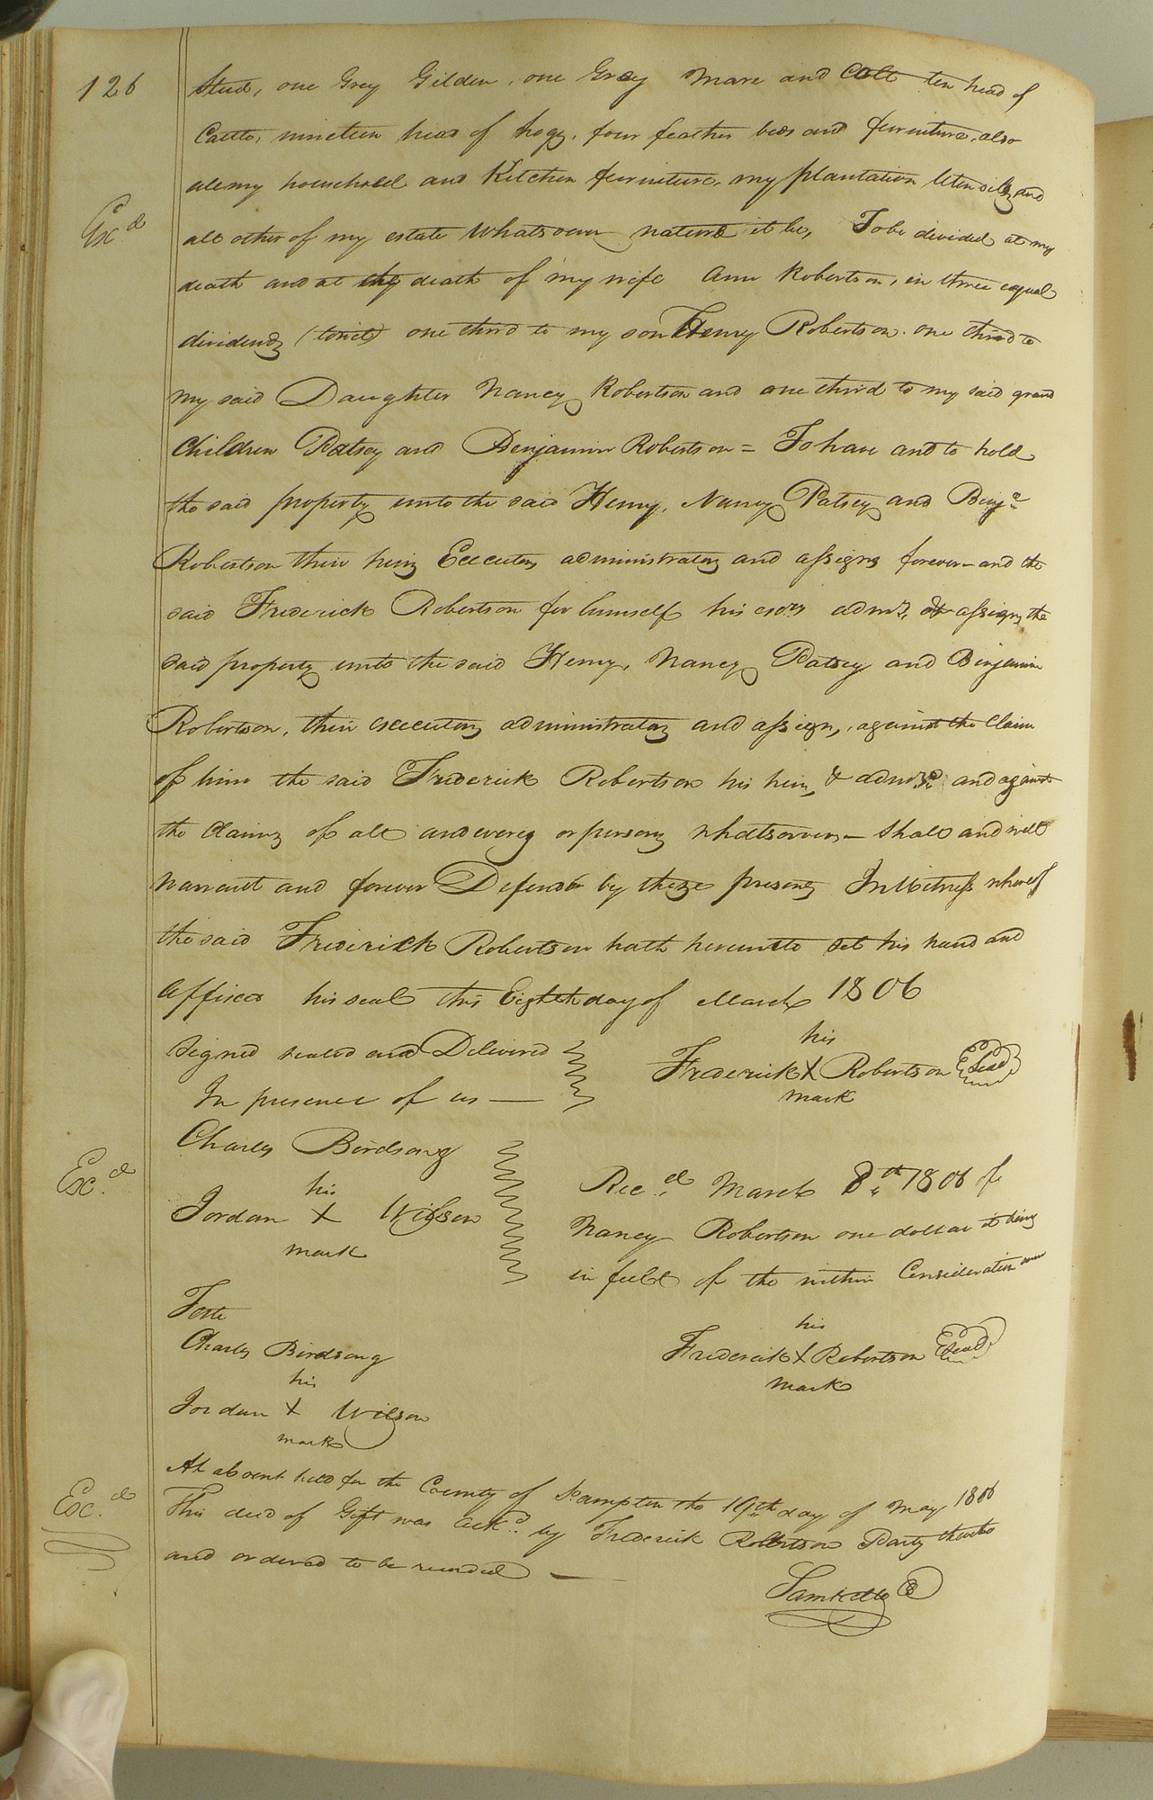 126
Stud, one Grey Gilden, one Grey Mare and Colt ten head of
Cattle, nineteen head of hogs, four feather beds and furniture, also
all my household and Kitchen furniture, my plantation Utensils and
Exd
all other of my estate whatsoever nature it be, To be divided at my
death and at the death of my wife Ann Robertson, in three equal
dividends (towit) one third to my son Henry Robertson. one third to
my said Daughter Nancy Robertson and one third to my said grand
Children Patsey and Benjamin Robertson = To have and to hold
the said property unto the said Henry, Nancy Patsey and Benja
Robertson their heirs Executors administrators and assigns forever - and the
said Frederick Robertson for himself his exors admrs & assigns the
said property unto the said Henry, Nancy Patsey and Benjamin
Robertson, their executors administrators and assigns, against the Claim
of him the said Frederick Robertson his heirs & and against
the Claims of all and every or persons whatsoever - shall and will
warrant and forever Defend by these presents In Witness whereof
the said Frederick Robertson hath hereunto set his hand and
affixed his seal this Eighth day of March 1806
Signed sealed and Delivered
In presence of us —
his
Frederick X Robertson Seal
mark
Charles Birdsong
Exd
his
Jordan X Wilson
mark
Recd March 8th 1806 of
Nancy Robertson one dollar it being
in full of the within Consideration
Teste
Charles Birdsong
his
Jordan X Wilson
mark
his
Frederick X Robertson Seal
mark
At a Court held for the County of Sampton the 19th day of May 1806
Exd
This deed of Gift was ackd by Frederick Robertson Party thereto
and ordered to be recorded —
Saml Kello C